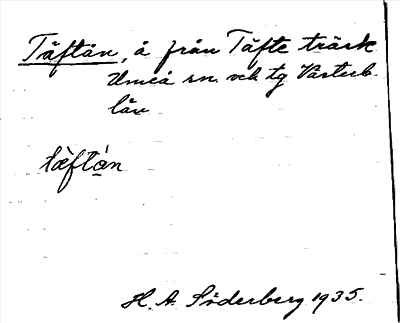 Täftån, å från Täfte träsk
Umeå sn. och tg Västerb.
län
tä̀ftá̱n
H. A. Söderberg 1935.